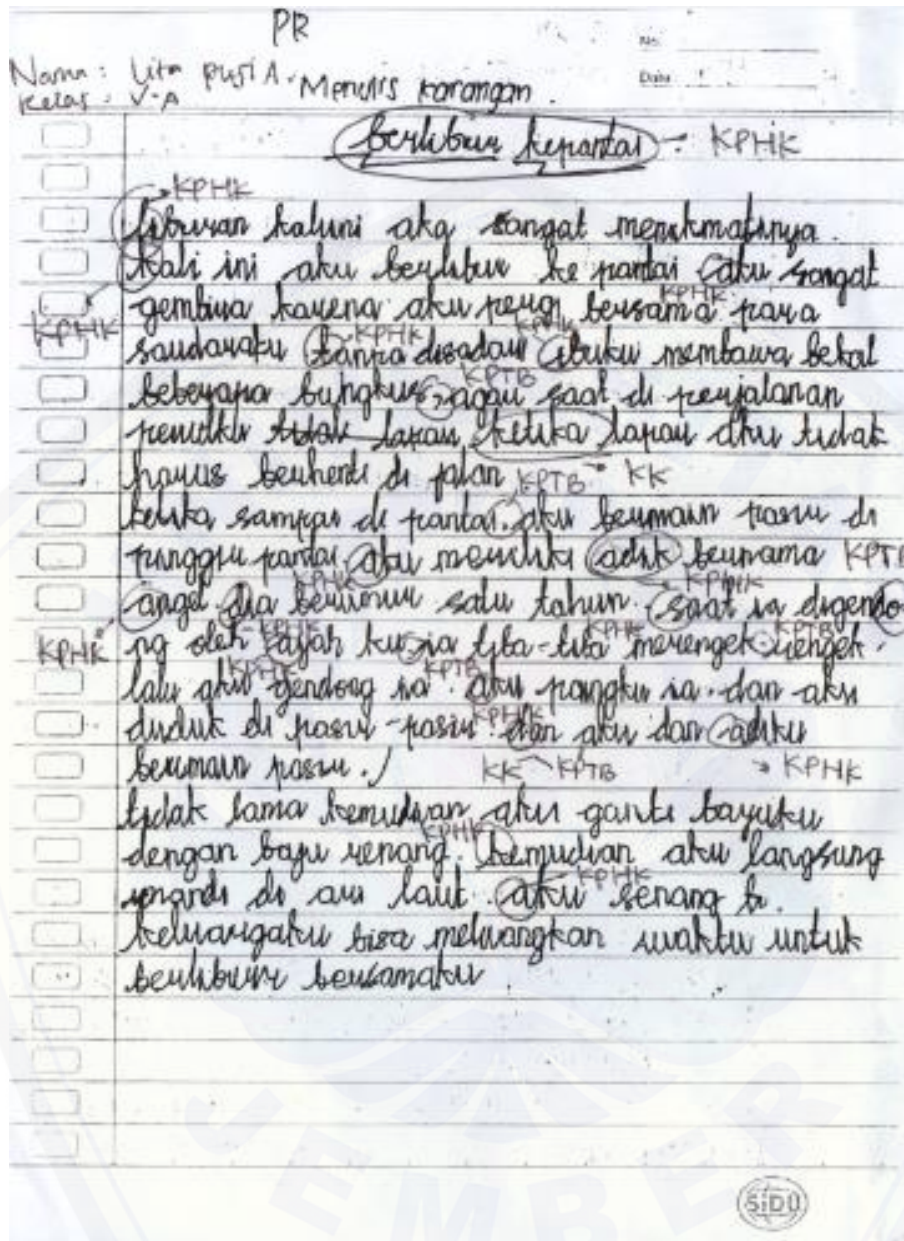 PR
No.
Date
Nama : Vita puji A.
Kelas : V-A
Menulis karangan.
berlibur kepantai KPHK
KPHK
liburan kali ini aku sangat menikmatinya.
kali ini aku berlibur ke pantai aku sangat
gembira karena aku pergi bersama para
KPHK KPHK
saudaraku tanpa disadari ibuku membawa bekal
KPHK KPHK
beberapa bungkus, agar saat di perjalanan
KPTB
perutku tidak lapar. ketika lapar aku tidak
harus berhenti di jalan KPTB KK
ketika sampai di pantai. aku bermain pasir di
pinggir pantai aku memiliki adik bernama KPTB
KPHK KPHK
angel dia berumur satu tahun. saat ia digendo
KPHK ng oleh ayah ku ia tiba-tiba merengek-rengek.
KPHK KPHK KPTB
lalu aku gendong ia. aku pangku ia. dan aku
KPHK KPTB
duduk di pasir-pasir. dan aku dan adiku
KPHK
bermain pasir. KK KPTB KPHK
tidak lama kemudian aku ganti bajuku
dengan baju renang. kemudian aku langsung
KPHK
mandi di air laut. aku senang
KPHK
keluargaku bisa meluangkan waktu untuk
berlibur bersamaku
SIDU
JEMBER